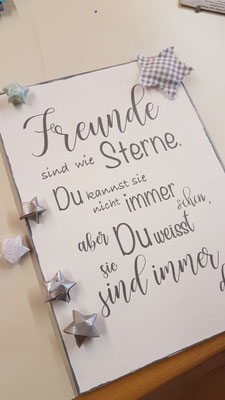 Freunde
sind wie Sterne.
Du kannst sie
nicht immer sehen,
aber Du weisst
sie
sind immer